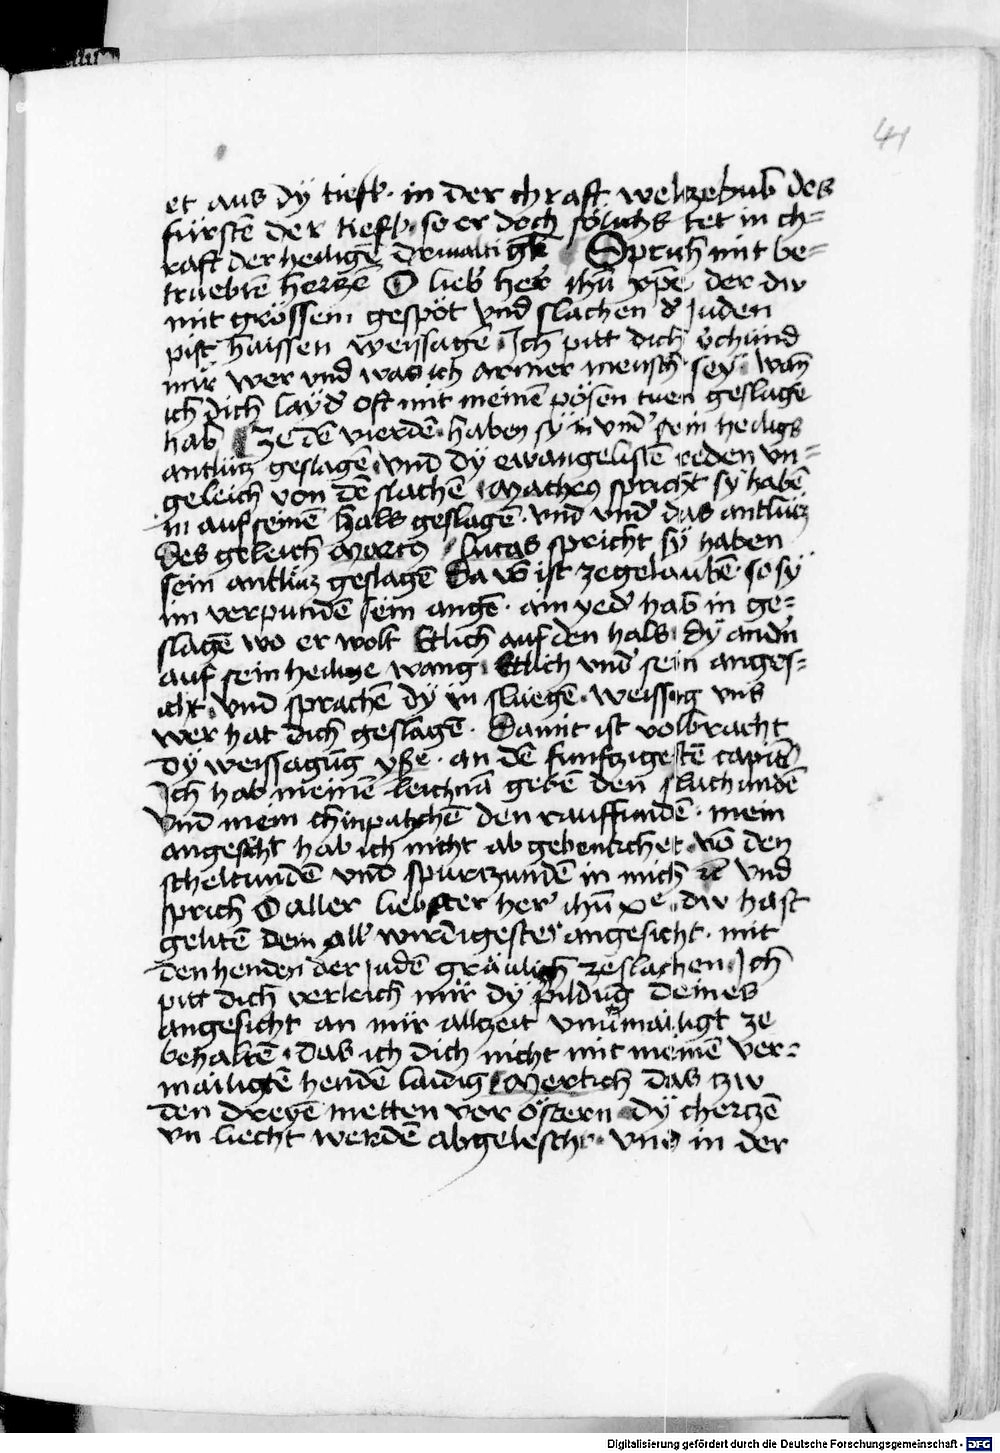 41
et aus dÿ tieff · in der chraft welzebub des
fürstē der tieff · so er doch sölichs tet in ch=
raft der heiligē Driualtigk Sprich mit be=
truebtē hertzē O lieb' her' ihū xp̄e der dw
mit grössem gespöt vnd slachen d' Juden
pist haissen weissagē Ich pitt dich v'chünd
mir wer vnd was ich armer mensch sey · wañ
ich dich layd' oft mit meinē pösen tuen geslagē
hab Ze dē vierdē haben sy in vnd' sein heiligs
antlütz geslagē vnd dÿ ewangelistē reden vn=
geleich von dē slachē Matheus spricht sy habē
in auf seinē hals geslagē · vnd vnd' das antlütz
des geleich Marcus Lucas spricht sÿ haben
sein antlütz geslagē Da vō ist zegelaubē · so sÿ
im verpundē sein augē · ain yed' hab in ge=
slagē wo er wolt Etlich auf den hals dÿ and'n
auf sein heilige wang Etlich vnd' sein anges=
icht vnd sprachē dÿ in sluegē · weissag vns
wer hat dich geslagē · Damit ist volbracht
dÿ weissagūg yse · an dē funftzigestē capit'
Ich hab meinē leichnā gebē den slachundē
vnd mein chinpachchē den rauffundē · mein
angesicht hab ich nicht ab gebentichet vō den
scheltundē vnd spürtzundē in mich vnd
sprich O aller liebster her' ihū xp̄e dw hast
gelitē dem all' wirdigestē angesicht · mit
den henden der Judē gräulich zeslachen Ich
pitt dich verleich mir dÿ pildūg deines
angesicht an mir allzeit vnu'mailigt ze
behaltē · das ich dich nicht mit meinē ver=
mailigtē hendē laidig Merkch das tzw
den dreyē metten vor östern dÿ chertzē
vn liecht werdē abgelescht · vnd in der
Digitalisierung gefördert durch die Deutsche Forschungsgemeinschaft - DFG